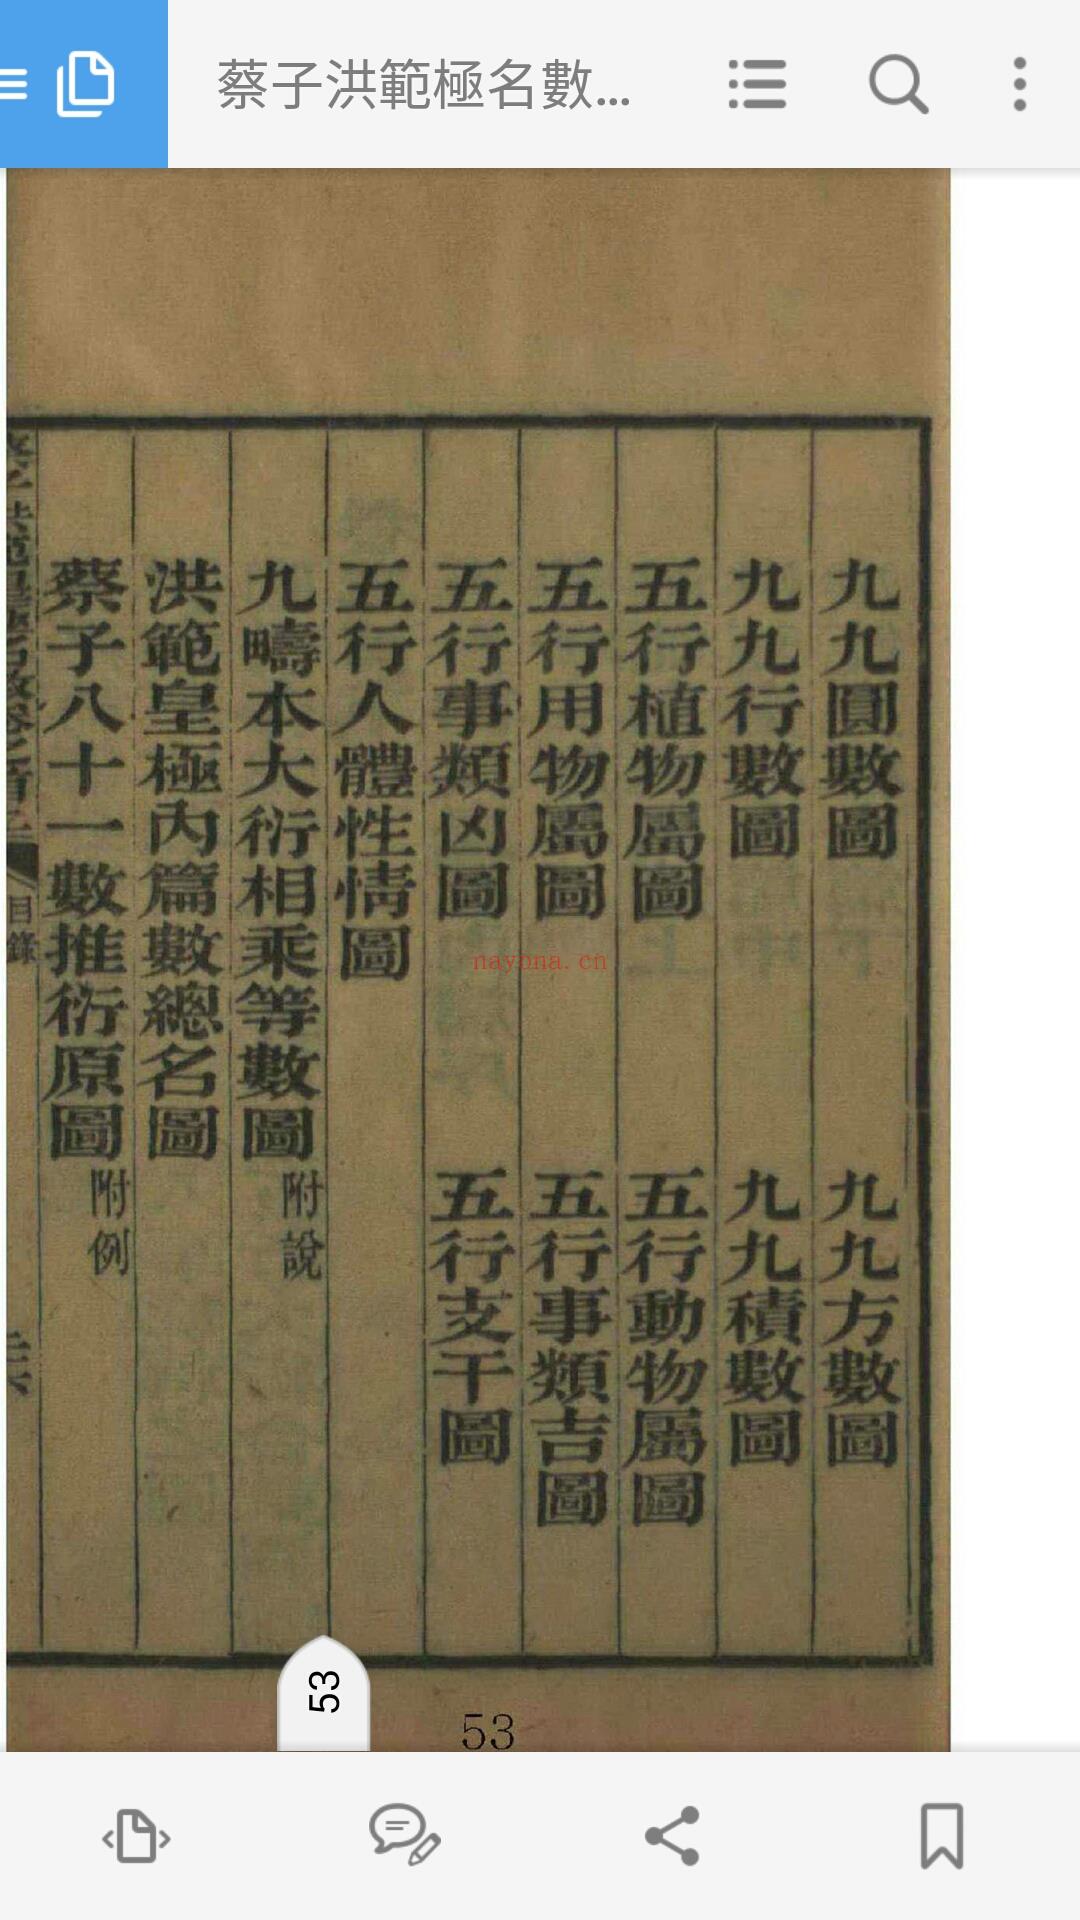 蔡子洪範極名數...
九九圓數圖
九九方數圖
九九行數圖
九九積數圖
五行植物屬圖
五行動物屬圖
五行用物屬圖
五行事類吉圖
五行事類凶圖
五行支干圖
五行人體性情圖
九疇本大衍相乘等數圖
附說
洪範皇極內篇數總名圖
蔡子八十一數推衍原圖
附例
目錄
nayona.cn
53
53